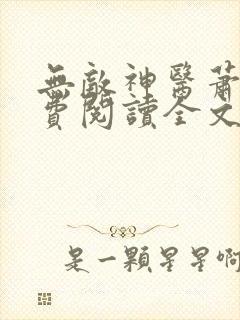 無敵神醫蕭
費閱讀全文
是一顆星星啊